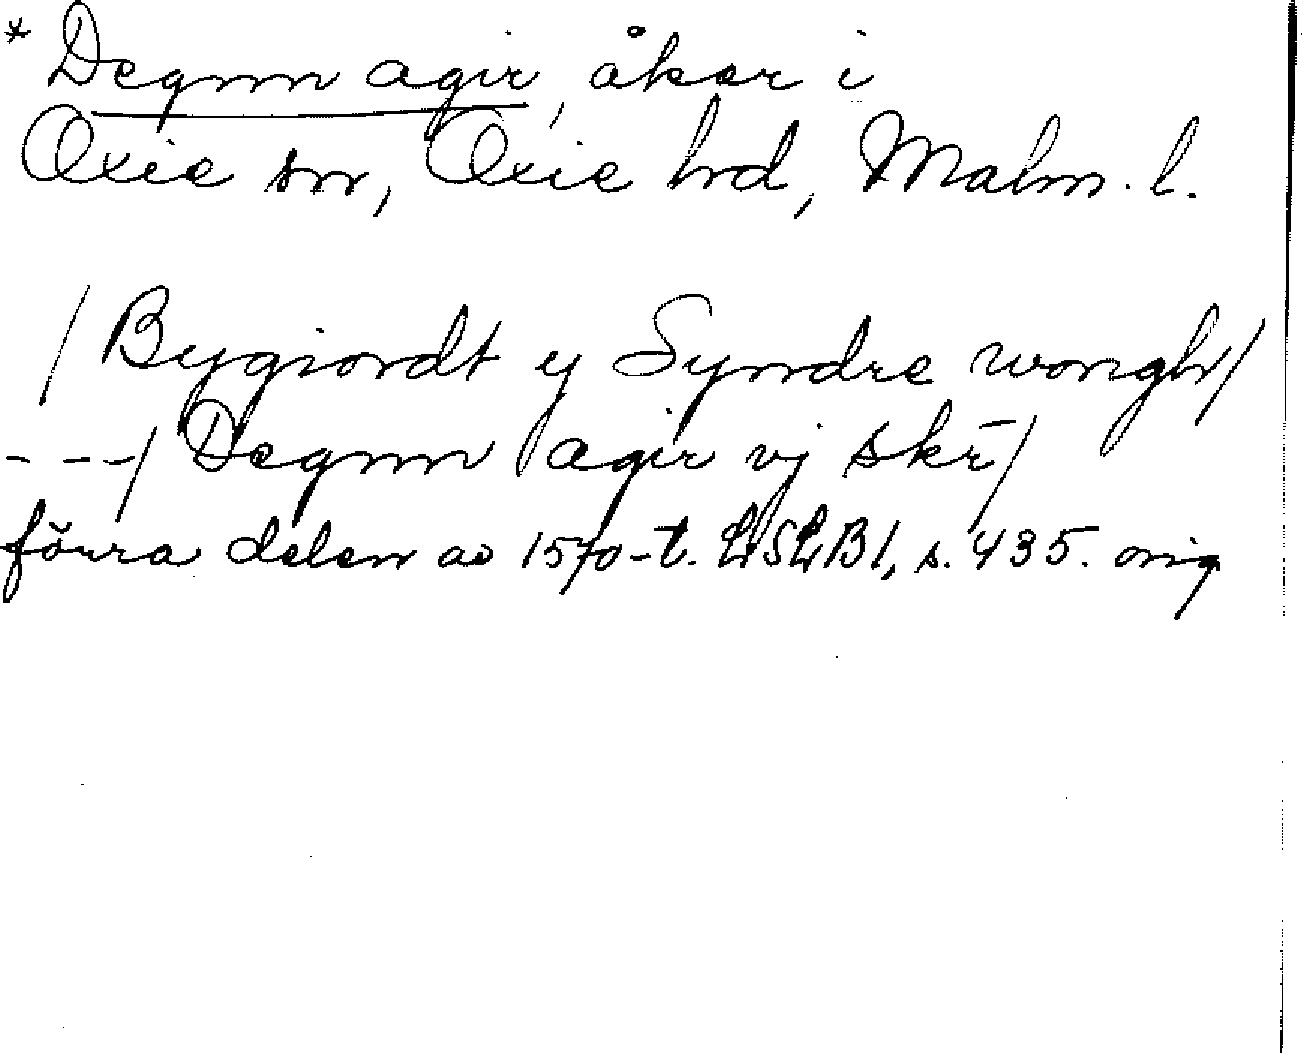 * Degnn agir, åker i
Oxie sn, Oxie hrd, Malm. l.
/ Bygiordt y Syndre wongh/
---/ Degnn agir vj skr̄/
förra delen av 1570-t. LSLB1, s. 435. orig